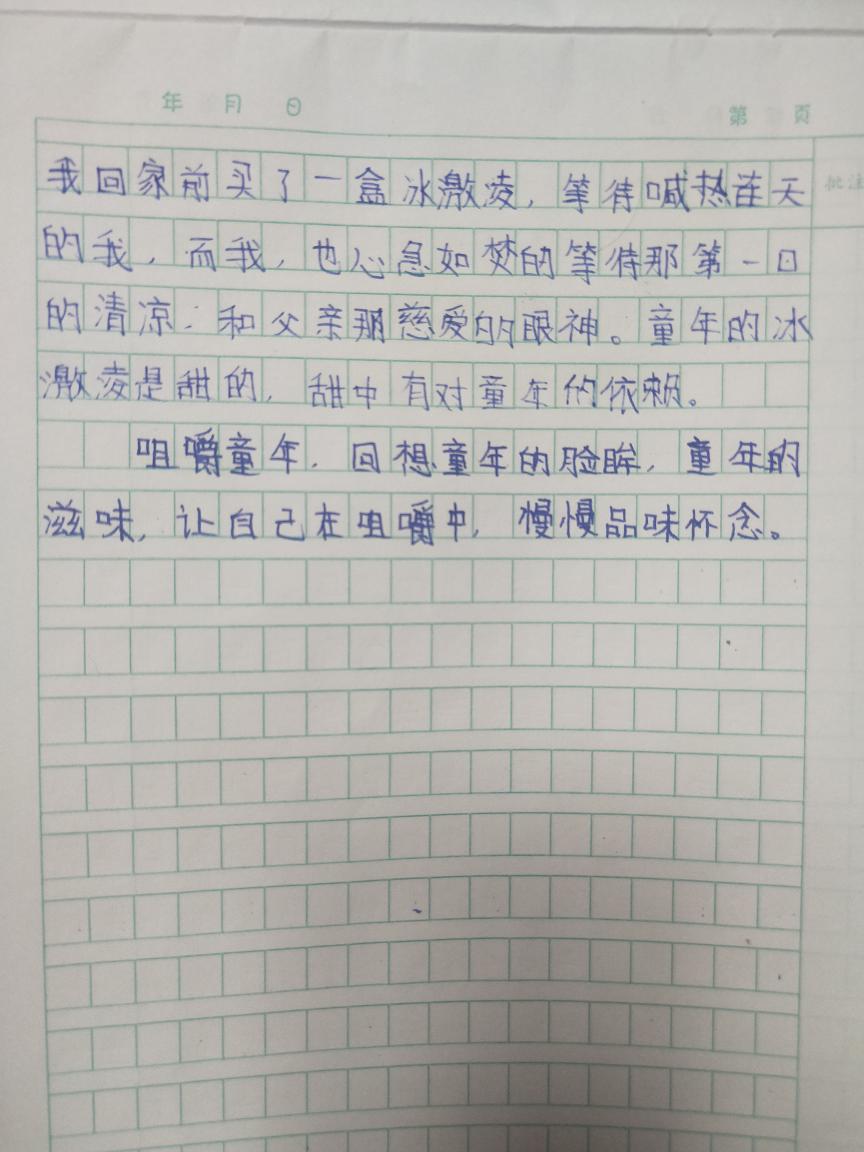 年 月 日 第 页
我回家前买了一盒冰激凌，等待喊热连天
批注
的我，而我，也心急如焚的等待那第一日
的清凉，和父亲那慈爱的眼神。童年的冰
激凌是甜的，甜中有对童年的依赖。
咀嚼童年，回想童年的脸眸，童年的
滋味，让自己在咀嚼中，慢慢品味怀念。